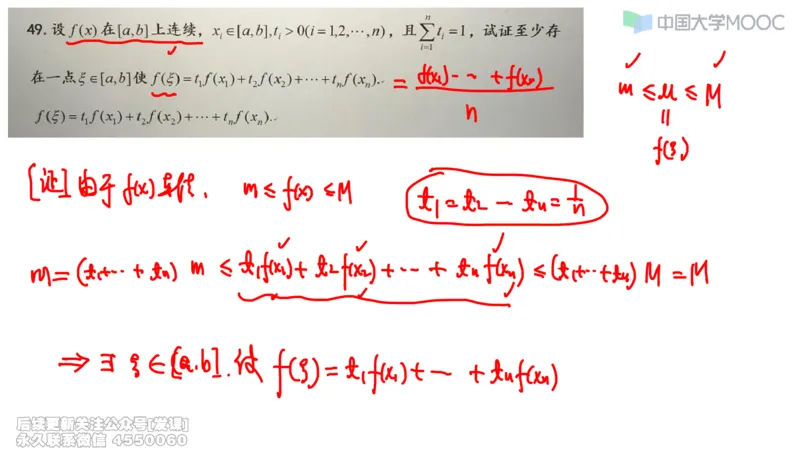 中国大学MOOC
49. 设 f(x) 在 [a,b] 上连续, x_i∈[a,b], t_i>0(i=1,2,⋯,n), 且 ∑_{i=1}^{n} t_i=1, 试证至少存
在一点 ξ∈[a,b] 使 f(ξ)=t_1f(x_1)+t_2f(x_2)+⋯+t_nf(x_n).
= \frac{f(x_1)-- +f(x_n)}{n}
f(ξ)=t_1f(x_1)+t_2f(x_2)+⋯+t_nf(x_n).
m ≤ μ ≤ M
||
f(ξ)
[证] 由于 f(x) 连续, m ≤ f(x) ≤ M
t_1=t_2 -- t_n=\frac{1}{n}
m=(t_1+⋯+t_n) m ≤ t_1f(x_1)+t_2f(x_2)+⋯+t_nf(x_n) ≤(t_1+⋯+t_n) M=M
⇒ ∃ ξ∈[a.b]. 使 f(ξ)=t_1f(x_1)+ -- +t_nf(x_n)
后续更新关注公众号[发课]
永久联系微信 4550060